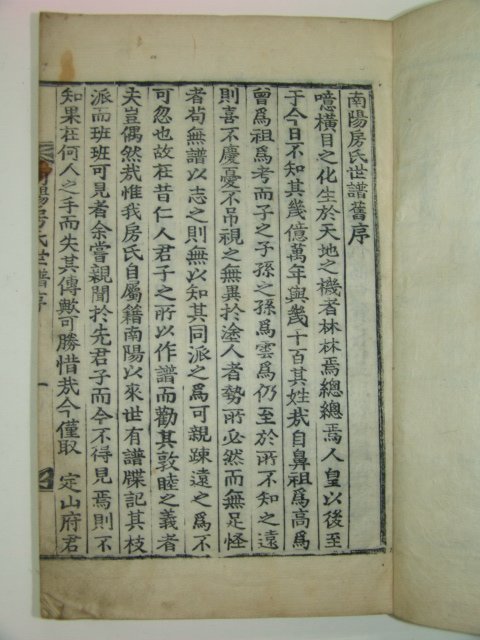 南陽房氏世譜舊序
噫橫目之化生於天地之機者林林焉總總焉人皇以後至
于今日不知其幾億萬年與幾十百其姓哉自鼻祖爲高爲
曾爲祖爲考而子之子孫之孫爲雲爲仍至於所不知之遠
則喜不慶憂不吊視之無異於塗人者勢所必然而無足怪
者苟無譜以志之則無以知其同派之爲可親疎遠之爲不
可忽也故在昔仁人君子之所以作譜而勸其敦睦之義者
夫豈偶然哉惟我房氏自屬籍南陽以來世有譜牒記其枝
派而班班可見者余嘗親聞於先君子而今不得見焉則不
知果在何人之手而失其傳歟可勝惜哉今僅取 定山府君
南陽房氏世譜序
一